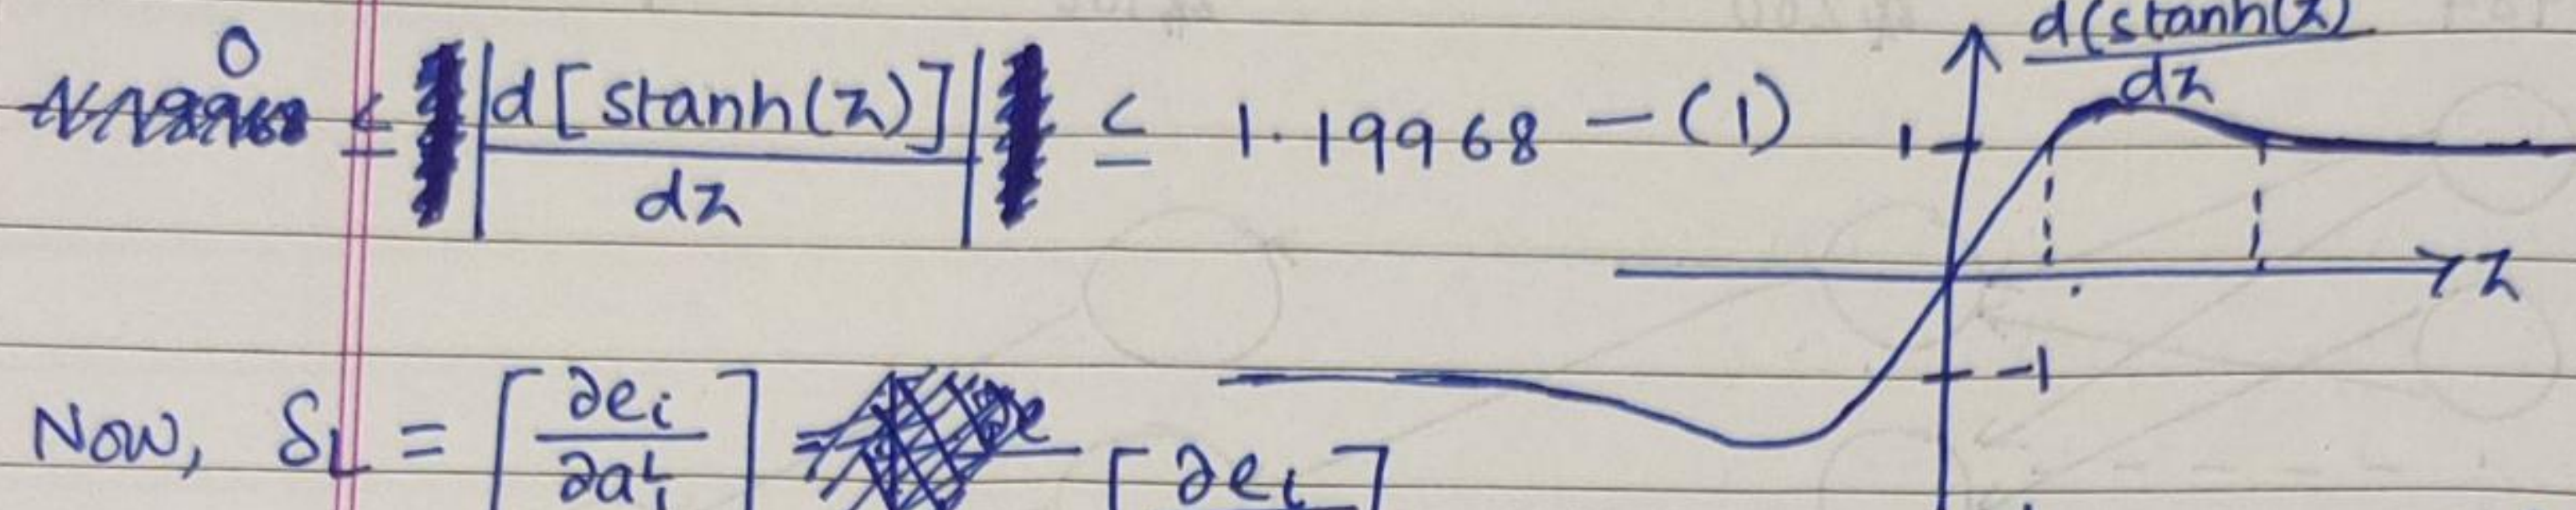 0 ≤ |d[stanh(z)]/dz| ≤ 1.19968 — (1)
d(stanh(z)
dz
1
z
-1
Now, δL = [∂ei/∂aLi] = [∂ei